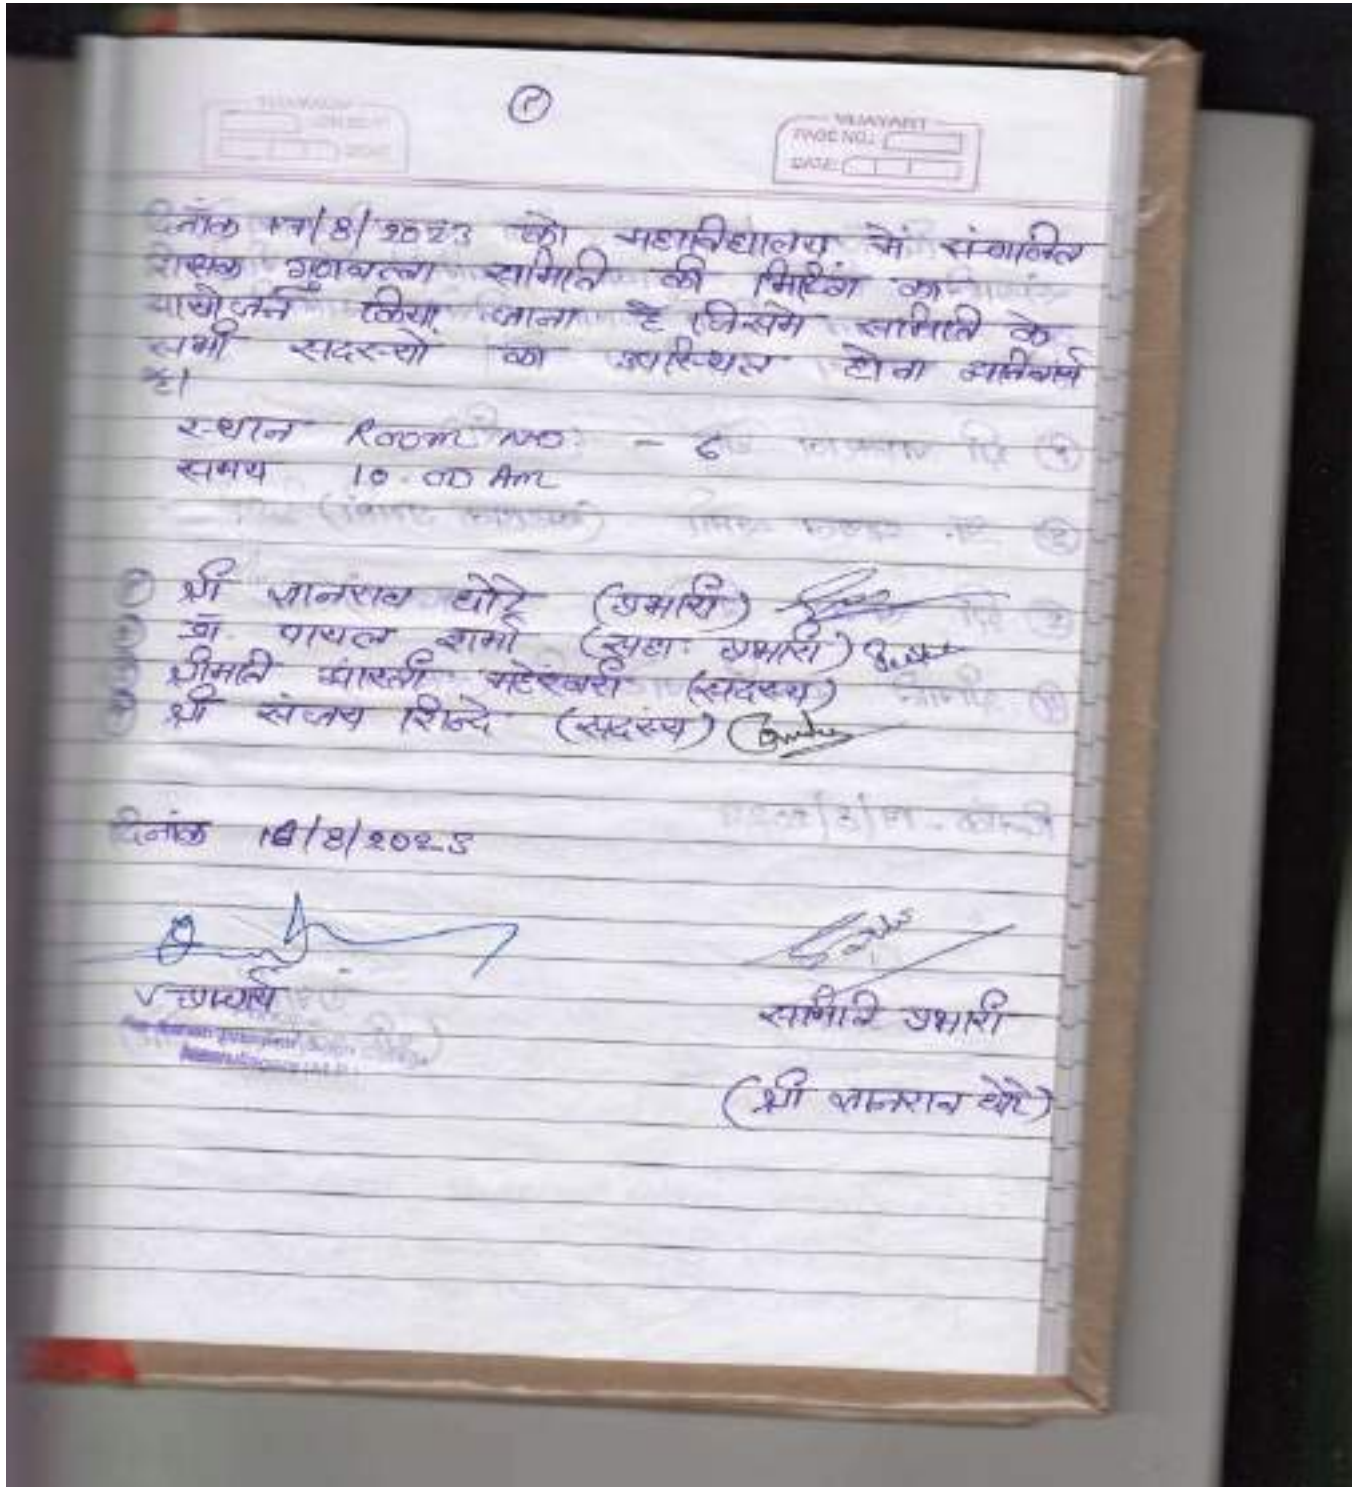 (१)
VIJAYART
PAGE NO.:
DATE:
दिनांक १७/8/२०२३ को महाविद्यालय में संचालित
गुणवत्ता समिति की मिटिंग का
आयोजन किया जाना है जिसमे समिति के
सभी सदस्यों का उपस्थित होना अनिवार्य
है।
स्थान Room No. - ६
समय 10.00 Am
१ श्री ज्ञानराव धोटे (प्रभारी)
२ डॉ. पायल शर्मा (सहा. प्रभारी)
३ श्रीमति आरती महेश्वरी (सदस्य)
४ श्री संजय शिन्दे (सदस्य)
दिनांक /8/२०२३
प्राचार्य
समिति प्रभारी
(श्री ज्ञानराव धोटे)